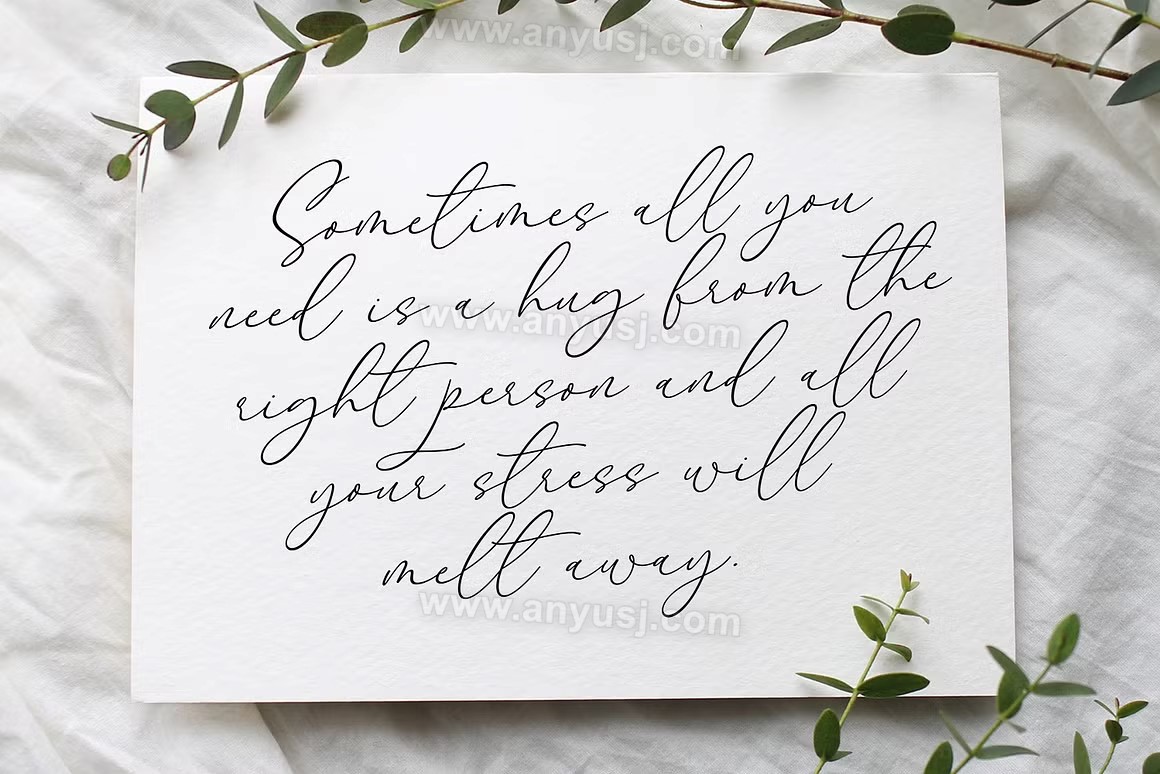 www.anyusj.com
Sometimes all you
need is a hug from the
www.anyusj.com
right person and all
your stress will
melt away.
www.anyusj.com